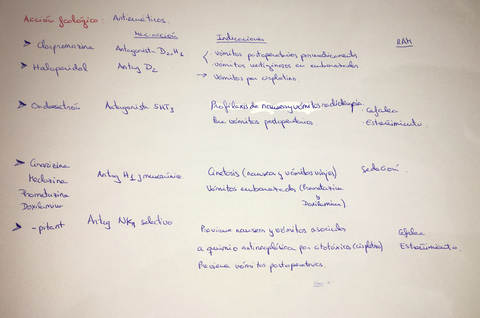 Acción fcológica: Antieméticos.
Mec acción Indicaciones RAM
Clorpromazina Antagonista D2, H1 vómitos postoperatorios
vómitos vertiginosos en embarazadas
Haloperidol Antag D2 vómitos por cisplatino.
Ondansetrón Antagonista 5HT3 Profilaxis de nauseas y vómitos radioterapia · Cefalea
vómitos postoperatorios · Estreñimiento.
Cinarizina Cinetosis (nauseas y vómitos viajes) Sedación.
Meclozina Antag H1 y muscarínico
Prometazina Vómitos embarazadas
Doxilamina Doxilamina)
-pitant Antag NK1 selectivo
Previene nauseas y vómitos asociados Cefalea
a quimio antineoplásica por citotóxicos (cisplatino) Estreñimiento.
Previene vómitos postoperatorios.